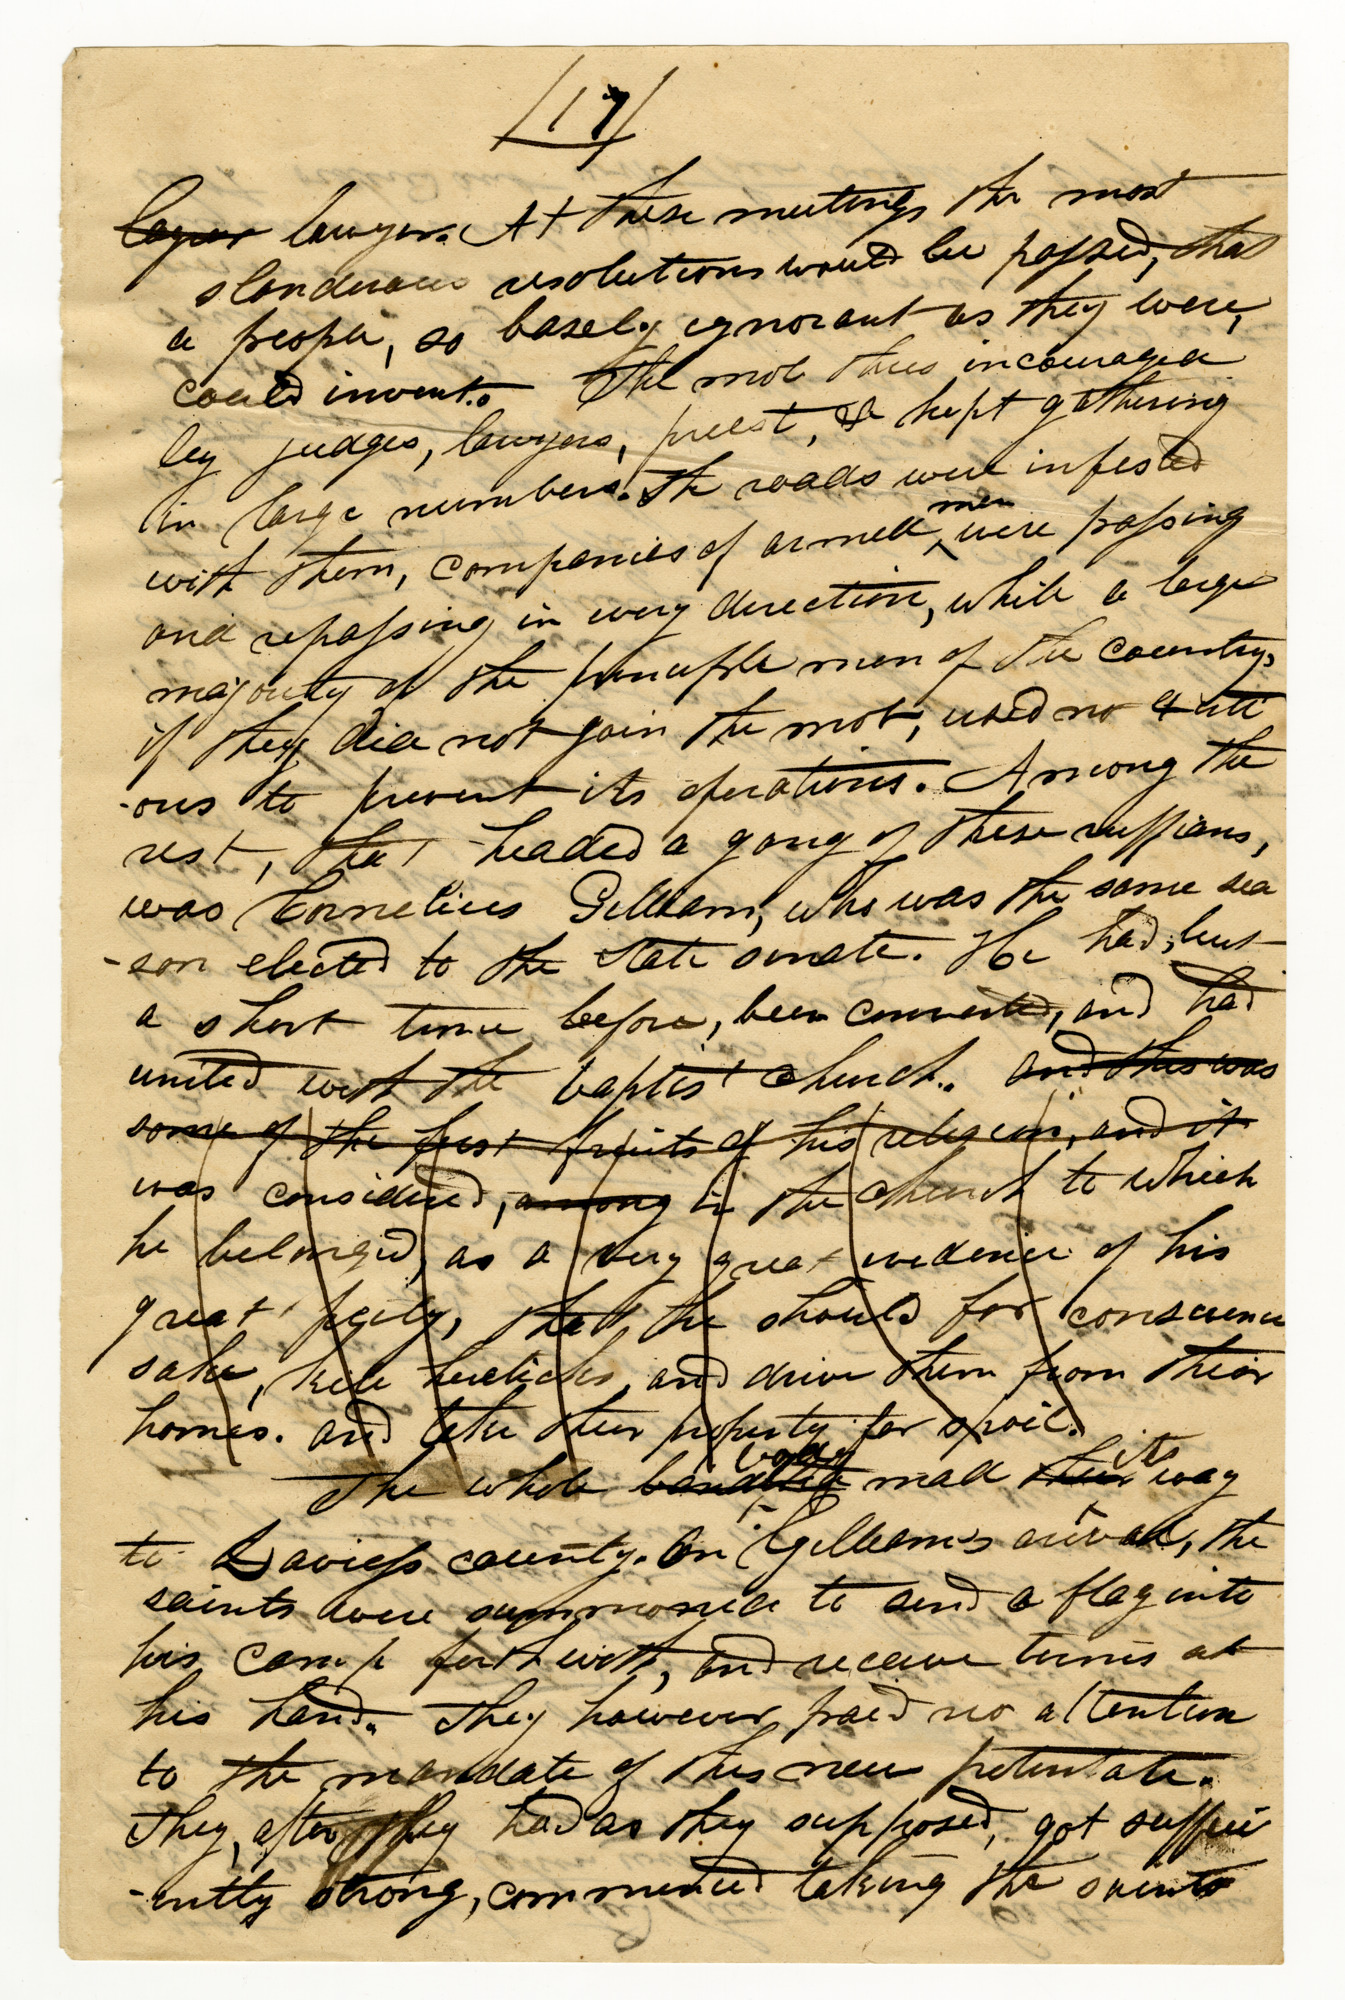 17
layers lawyers. At these meetings the most
slanderous resolutions would be passed, that
a people, so basely ignorant as they were,
could invent. The mob thus incouraged
by judges, lawyers, preest, & kept gathering
in large numbers. The roads were infested
with them, companies of armed men were passing
and repassing in every direction, while a large
majority of the principle men of the country,
if they did not join the mob, used no
-ons to prevent its operations. Among the
rest, that headed a gang of these ruffians,
was Cornelius Gilliam, who was the same sea
-son elected to the State senate. He had, but
a short time before, been converted, and had
united with the baptist church. and this was
some of the first fruits of his religion, and it
was considered, among in the church to which
he belonged, as a very great evidence of his
great piety, that he should for conscience
sake, kill heriticks, and drive them from their
homes. and take their property for spoil.
The whole banditti body made their its way
to Daviess county. On Gilliam's arival, the
saints were summoned to send a flag into
his camp forthwith, and receive terms at
his hand. They however paid no attention
to the mandate of this new potentate.
They, after they had as they supposed, got suffici
-ently strong, commenced taking the saints